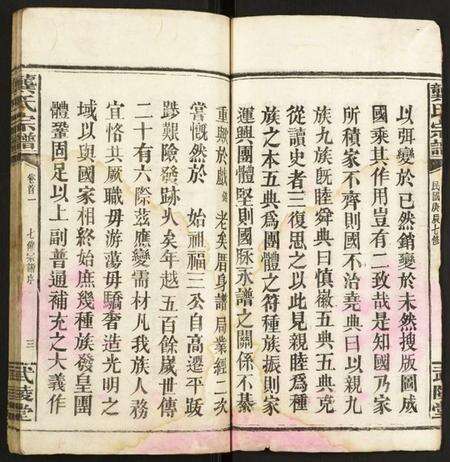 龔氏宗譜
民國庚辰七修
武陵堂
以弭變於已然銷變於未然搜版圖成
國乘其作用豈有二致哉是知國乃家
所積家不齊則國不治堯典曰以親九
族九族既睦舜典曰慎徽五典五典克
從讀史者三復思之以此見親睦爲種
族之本五典爲團體之符種族振則家
運興團體堅則國脉永譜之關係不綦
重歟於戲 老矣厝身譜局業經二次
嘗慨然於 始祖福三公自高遷平跋
踄艱險發跡火矣年越五百餘歲世傳
二十有六際茲應變需材凡我族人務
宜恪共厥職毋游蕩毋驕奢造光明之
域以與國家相終始庶幾種族發皇團
體鞏固足以上副普通補充之大義作
龔氏宗譜
卷首一
七修宗譜序
三
武陵堂